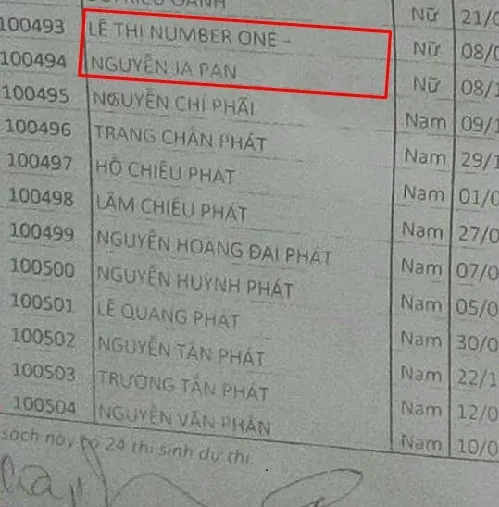 OANH Nữ 21/0
100493 LÊ THI NUMBER ONE - Nữ 08/0
100494 NGUYỄN JA PAN Nữ 08/1
100495 NGUYỄN CHÍ PHÃI Nam 09/1
100496 TRANG CHẤN PHÁT Nam 29/1
100497 HỒ CHIÊU PHÁT Nam 01/0
100498 LÂM CHIÊU PHÁT Nam 27/0
100499 NGUYỄN HOÀNG ĐẠI PHÁT Nam 07/0
100500 NGUYỄN HUỲNH PHÁT Nam 05/0
100501 LÊ QUANG PHÁT Nam 30/0
100502 NGUYỄN TẤN PHÁT Nam 22/1
100503 TRƯƠNG TẤN PHÁT Nam 12/0
100504 NGUYỄN VĂN PHẬN Nam 10/0
sách này có 24 thí sinh dự thi.